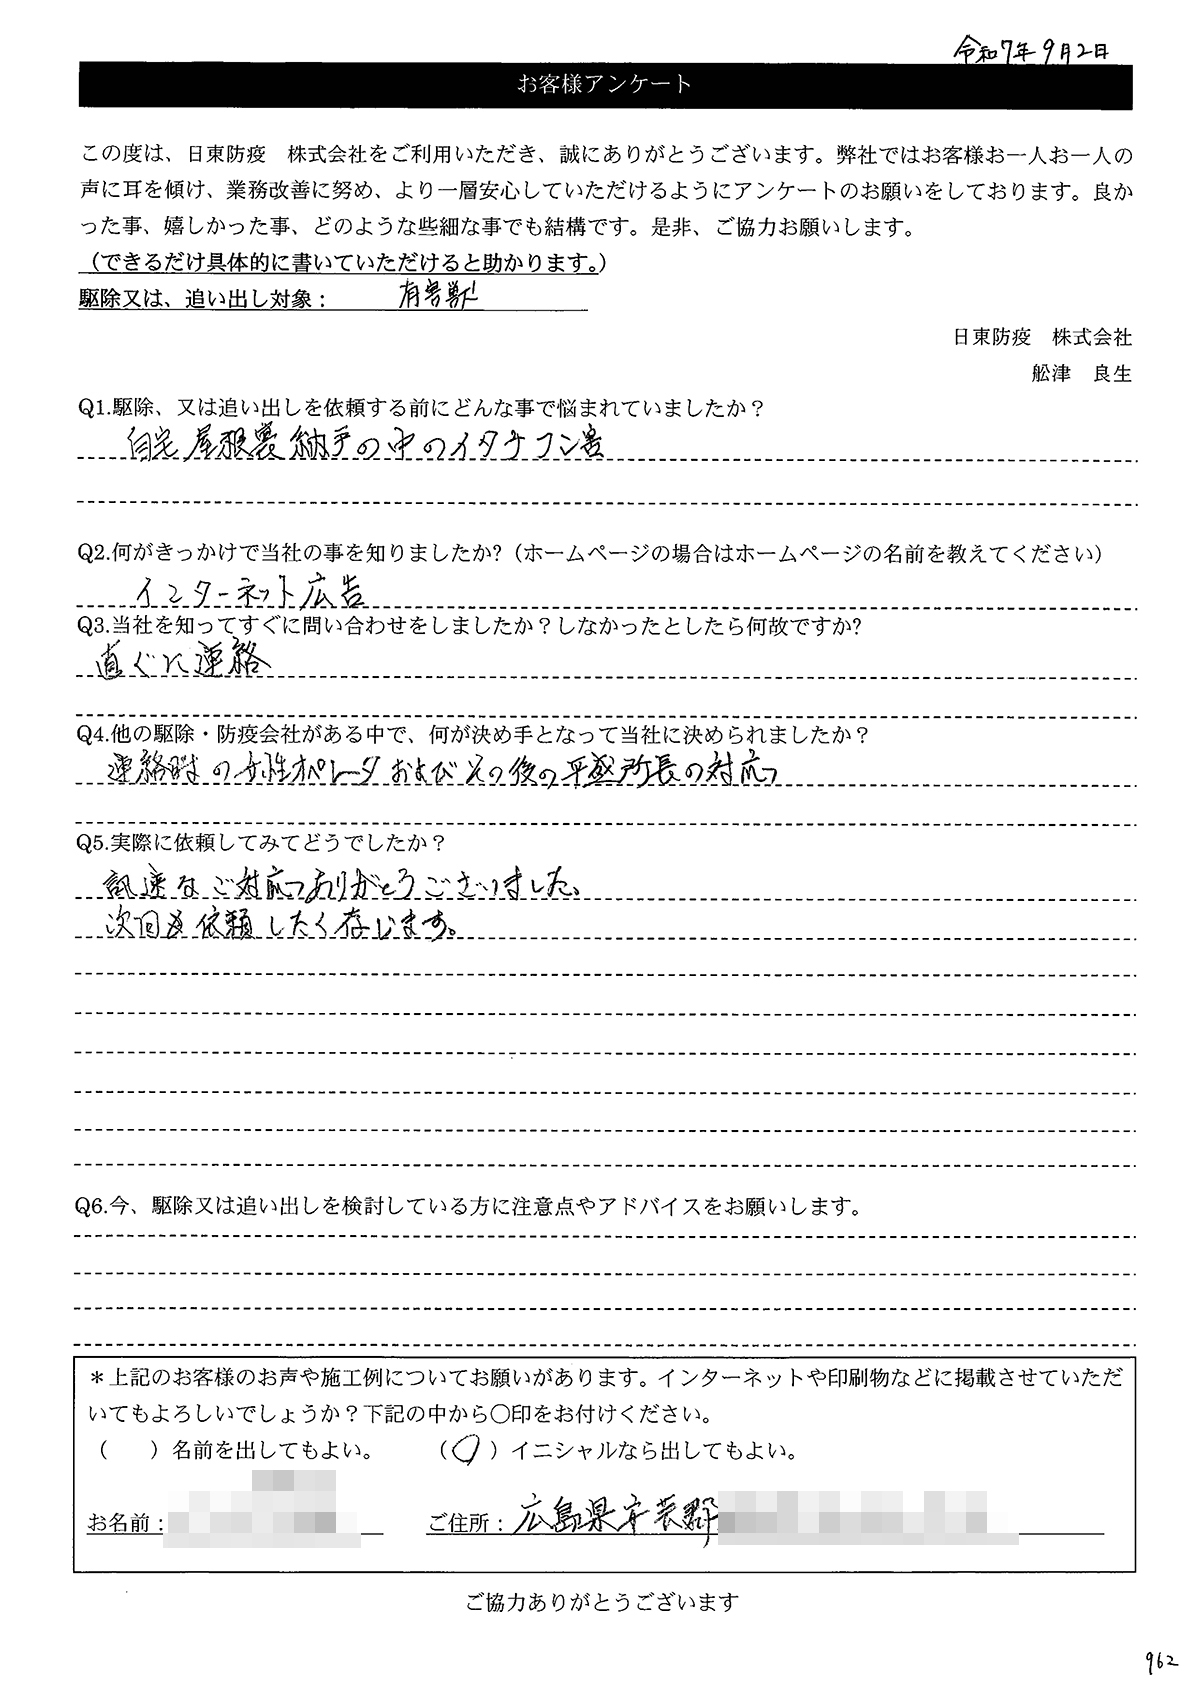 令和7年9月2日
お客様アンケート
この度は、日東防疫　株式会社をご利用いただき、誠にありがとうございます。弊社ではお客様お一人お一人の
声に耳を傾け、業務改善に努め、より一層安心していただけるようにアンケートのお願いをしております。良か
った事、嬉しかった事、どのような些細な事でも結構です。是非、ご協力お願いします。
（できるだけ具体的に書いていただけると助かります。）
駆除又は、追い出し対象： 有害獣
日東防疫　株式会社
舩津　良生
Q1.駆除、又は追い出しを依頼する前にどんな事で悩まれていましたか？
自宅屋根裏納戸の中のイタチフン害
Q2.何がきっかけで当社の事を知りましたか?（ホームページの場合はホームページの名前を教えてください）
インターネット広告
Q3.当社を知ってすぐに問い合わせをしましたか？しなかったとしたら何故ですか?
直ぐに連絡
Q4.他の駆除・防疫会社がある中で、何が決め手となって当社に決められましたか？
連絡時の女性オペレータおよびその後の平盛所長の対応
Q5.実際に依頼してみてどうでしたか？
迅速なご対応ありがとうございました。
次回も依頼したく存じます。
Q6.今、駆除又は追い出しを検討している方に注意点やアドバイスをお願いします。
＊上記のお客様のお声や施工例についてお願いがあります。インターネットや印刷物などに掲載させていただ
いてもよろしいでしょうか？下記の中から〇印をお付けください。
（　　）名前を出してもよい。　　（〇）イニシャルなら出してもよい。
お名前：　　ご住所：広島県安芸郡
ご協力ありがとうございます
962